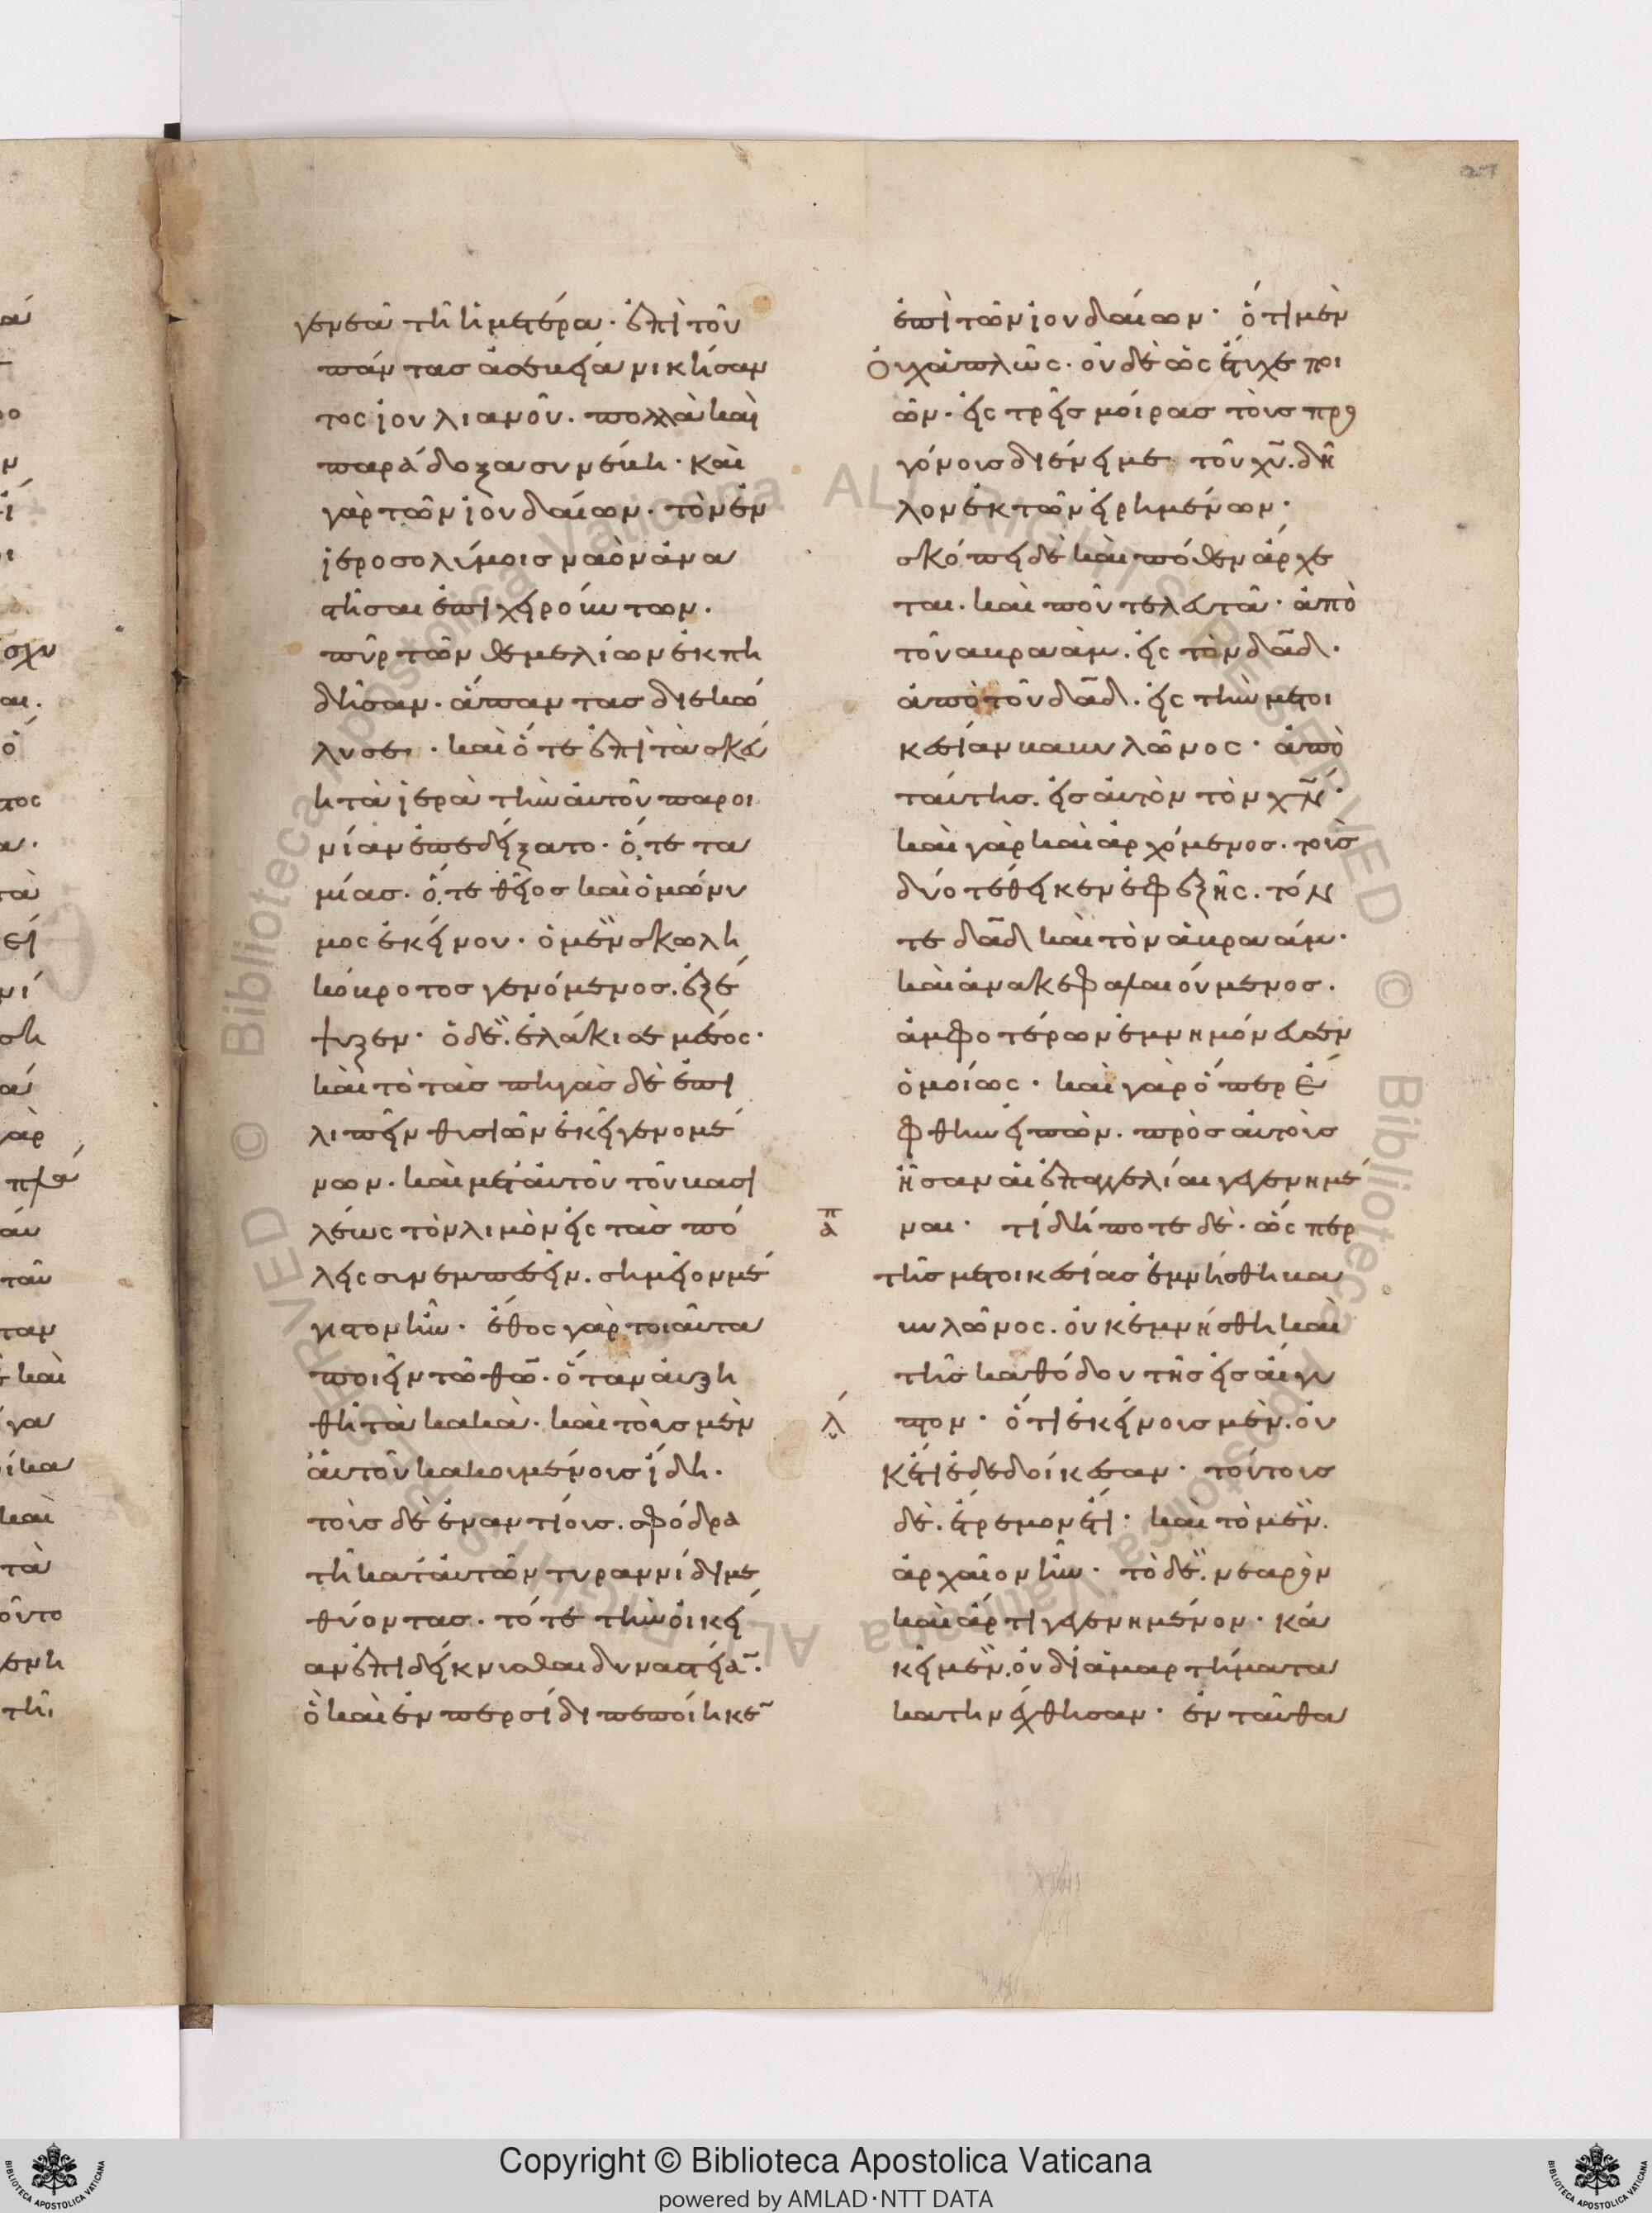 27
γενεᾶ τῆ ἡμετέρα· ἐπὶ τοῦ
πάντας ἀσεβεία νικήσαν
τος ἰουλιανοῦ. πολλὰ καὶ
παράδοξα συνέβη· καὶ
γὰρ τῶν ἰουδαίων. τὸν ἐν
ἱεροσολύμοις ναὸν ἀνα
στῆσαι ἐπιχειρούντων.
πῦρ τῶν θεμελίων ἐκπη
δῆσαν. ἅπαντας διεκώ
λυσε· καὶ ὅτε ἐπὶ τὰ σκεύ
η τὰ ἱερὰ τὴν αὐτοῦ παροι
νίαν ἐπεδείξατο. ὅ, τε τα
μίας. ὅ, τε θεῖος καὶ ὁμώνυ
μος ἐκείνου. ὁ μὲν σκωλη
κόβροτος γενόμενος. ἐξέ
ψυξεν· ὁ δὲ. ἐλάκισε μέσος·
καὶ τὸ τὰς πηγὰς δὲ ἐπι
λιπεῖν θυσιῶν ἐκεῖ γενομέ
νων. καὶ μετ' αὐτοῦ τοῦ βασι
λέως τὸν λιμὸν εἰς τὰς πό
λεις συνεμπεσεῖν. σημεῖον μέ
γιστον ἦν· ἔθος γὰρ τοιαῦτα
ποιεῖν τῶ θῶ. ὅταν αὐξη
θῆ τὰ κακὰ. καὶ τοὺς μὲν
αὐτοῦ κακουμένους ἴδη.
τοὺς δὲ ἐναντίους. σφόδρα
τῆ κατ' αὐτῶν τυραννίδι με
θύοντας. τότε τὴν οἰκεί
αν ἐπιδείκνυσθαι δυναστείαν.
ὃ καὶ ἐν περσίδι πεποίηκε
ἐπὶ τῶν ἰουδαίων· ὅτι μὲν
οὐχ ἁπλῶς. οὐδὲ ὡς ἔτυχε ποι
ῶν. εἰς τρεῖς μοίρας τοὺς προ
γόνους διένειμε τοῦ χῦ. δῆ
λον ἐκ τῶν εἰρημένων·
σκόπει δὲ καὶ πόθεν ἄρχε
ται. καὶ ποῦ τελευτᾶ· ἀπὸ
τοῦ αβρααμ. εἰς τὸν δᾶδ·
ἀπὸ τοῦ δᾶδ. εἰς τὴν μετοι
κεσίαν βαβυλῶνος· ἀπὸ
ταύτης. εἰς αὐτὸν τὸν χν·
καὶ γὰρ καὶ ἀρχόμενος. τοὺς
δύο τέθεικεν ἐφεξῆς. τόν
τε δᾶδ καὶ τὸν ἀβραάμ·
καὶ ἀνακεφαλαιούμενος.
ἀμφοτέρων ἐμνημόνευσεν
ὁμοίως· καὶ γὰρ ὅπερ ἔ
φθην εἰπών. πρὸς αὐτοὺς
ἦσαν αἱ ἐπαγγελίαι γεγενημέ
ναι· τί δήποτε δὲ. ὥσπερ
τῆς μετοικεσίας ἐμνήσθη βα
βυλῶνος. οὐκ ἐμνήσθη καὶ
τῆς καθόδου τῆς εἰς αἴγυ
πτον· ὅτι ἐκείνους μὲν. οὐ
κέτι ἐδεδοίκεσαν· τούτους
δὲ. ἔτρεμον ἔτι· καὶ τὸ μὲν.
ἀρχαῖον ἦν· τὸ δὲ. νεαρὸν
καὶ ἄρτι γεγενημένον· κἀ
κεῖ μὲν. οὐ δι' ἁμαρτήματα
κατηνέχθησαν· ἐνταῦθα
Copyright © Biblioteca Apostolica Vaticana
powered by AMLAD·NTT DATA